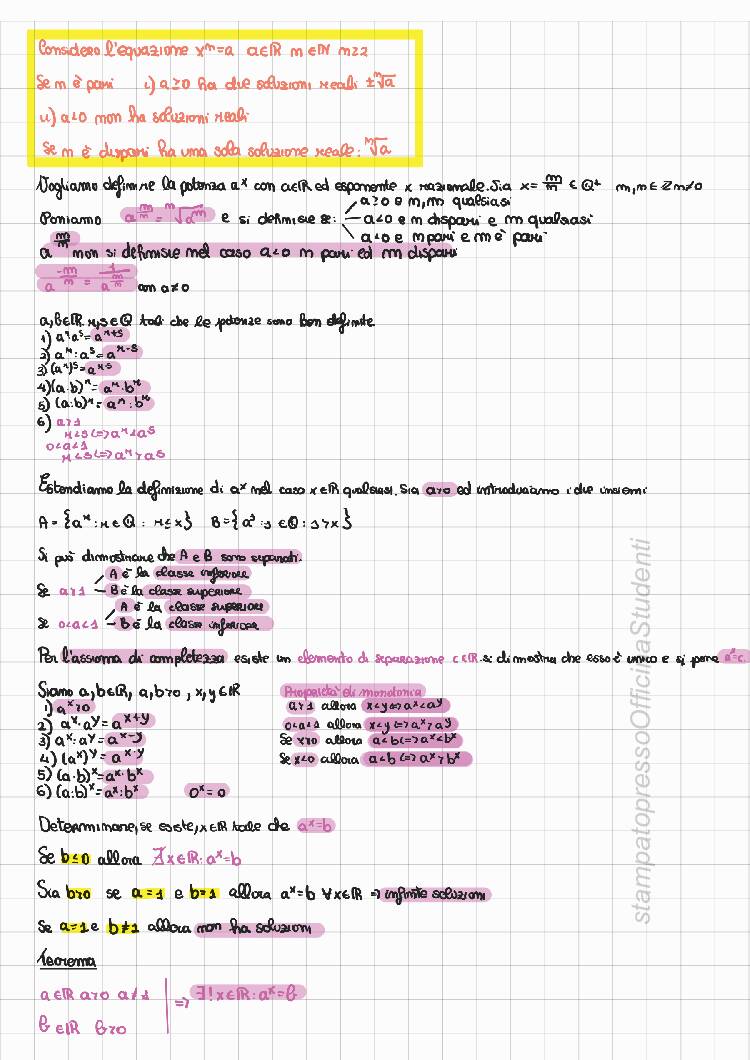 Considero l'equazione xⁿ=a a∈ℝ n∈ℕ n≥2
Se n è pari i) a≥0 ha due soluzioni reali ±ⁿ√a
ii) a<0 non ha soluzioni reali
Se n è dispari ha una sola soluzione reale: ⁿ√a
Vogliamo definire la potenza aˣ con a∈ℝ ed esponente x razionale. Sia x= m/n ∈ ℚ⁺ m,n∈ℤ n≠0
a≥0 e m,n qualsiasi
Poniamo a^(m/n) = ⁿ√aᵐ e si definisce se: a<0 e n dispari e m qualsiasi
a<0 e n pari e m è pari
a^(m/n) non si definisce nel caso a<0 n pari ed m dispari
a^(-m/n) = 1/a^(m/n) con a≠0
a,b∈ℝ r,s∈ℚ tali che le potenze sono ben definite.
1) aʳaˢ=aʳ⁺ˢ
2) aʳ:aˢ=aʳ⁻ˢ
3) (aʳ)ˢ=aʳ·ˢ
4) (a·b)ʳ=aʳ·bʳ
5) (a:b)ʳ=aʳ:bʳ
6) a>1
r<s<=>aʳ<aˢ
0<a<1
r<s<=>aʳ>aˢ
Estendiamo la definizione di aˣ nel caso x∈ℝ qualsiasi. Sia a>0 ed introduciamo i due insiemi
A={aʳ:r∈ℚ: r≤x} B={aˢ:s∈ℚ:s>x}
Si può dimostrare che A e B sono separati.
A è la classe inferiore
Se a>1 B è la classe superiore
A è la classe superiore
Se 0<a<1 B è la classe inferiore
Per l'assioma di completezza esiste un elemento di separazione c∈ℝ. si dimostra che esso è unico e si pone aˣ=c.
Siano a,b∈ℝ, a,b>0, x,y∈ℝ Proprietà di monotonia
1) aˣ>0 a>1 allora x<y<=>aˣ<aʸ
2) aˣ·aʸ=aˣ⁺ʸ 0<a<1 allora x<y<=>aˣ>aʸ
3) aˣ:aʸ=aˣ⁻ʸ Se x>0 allora a<b<=>aˣ<bˣ
4) (aˣ)ʸ=aˣ·ʸ Se x<0 allora a<b<=>aˣ>bˣ
5) (a·b)ˣ=aˣ·bˣ
6) (a:b)ˣ=aˣ:bˣ 0ˣ=0
Determinare, se esiste, x∈ℝ tale che aˣ=b
Se b≤0 allora ∄x∈ℝ:aˣ=b
Sia b>0 se a=1 e b=1 allora aˣ=b ∀x∈ℝ => infinite soluzioni
Se a=1 e b≠1 allora non ha soluzioni
Teorema
a∈ℝ a>0 a≠1 => ∃!x∈ℝ:aˣ=b
b∈ℝ b>0
stampatopressoOfficinaStudenti